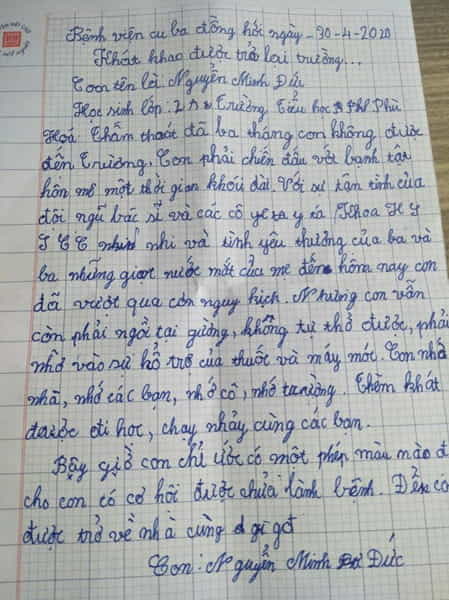 Bệnh viện cu ba đồng hới ngày -30-4-2020
Khát khao được trở lại trường...
Con tên là: Nguyễn Minh Đức
Học sinh lớp: 2 Trường Tiểu học Phú
Hoá Thấm thoát đã ba tháng con không được
đến trường. Con phải chiến đấu với bạnh tật
hôn mê một thời gian khói dài. Với sự tận tình của
đôi ngũ bác sĩ và các cô y tá Khoa H
T C C nhi và tình yêu thương của ba và
ba những giọt nước mắt của mẹ đến hôm nay con
đã vượt qua cơn nguy kịch. Nhưng con vẫn
còn phải ngồi tại gường, không tự thở được, phải
nhờ vào sự hổ trợ của thuốc và máy móc. Con nhớ
nhà, nhớ các bạn, nhớ cô, nhớ trường. Thèm khát
được đi học, chạy nhảy cùng các bạn.
Bây giờ con chỉ ước có một phép màu nào đ
cho con có cơ hội được chửa lành bệnh. Để co
được trở về nhà cùng gi gđ
Con: Nguyễn Minh Đức